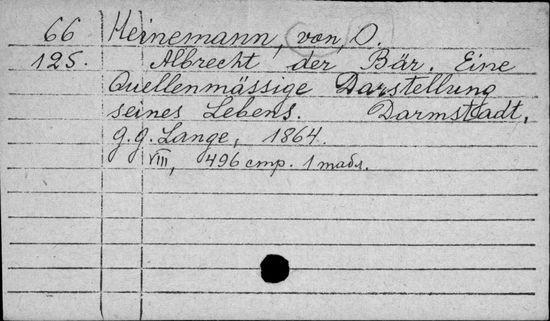 66 Heinemann, von, O.
125. Albrecht der Bär. Eine
Quellenmässige Darstellung
seines Lebens. Darmstadt,
g. g. Lange, 1864.
VIII, 496 стр. 1 табл.